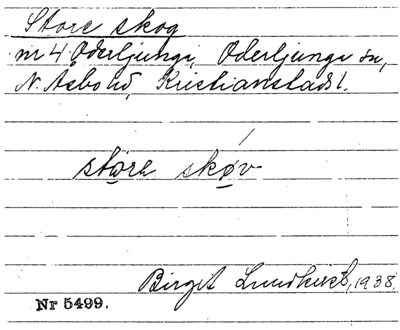 Store skog
nr 4 Oderljunga, Oderljunga sn,
N. Åsbo hd, Kristianstads l.
störe skøv
Birget Lundkvist, 1938.
Nr 5499.